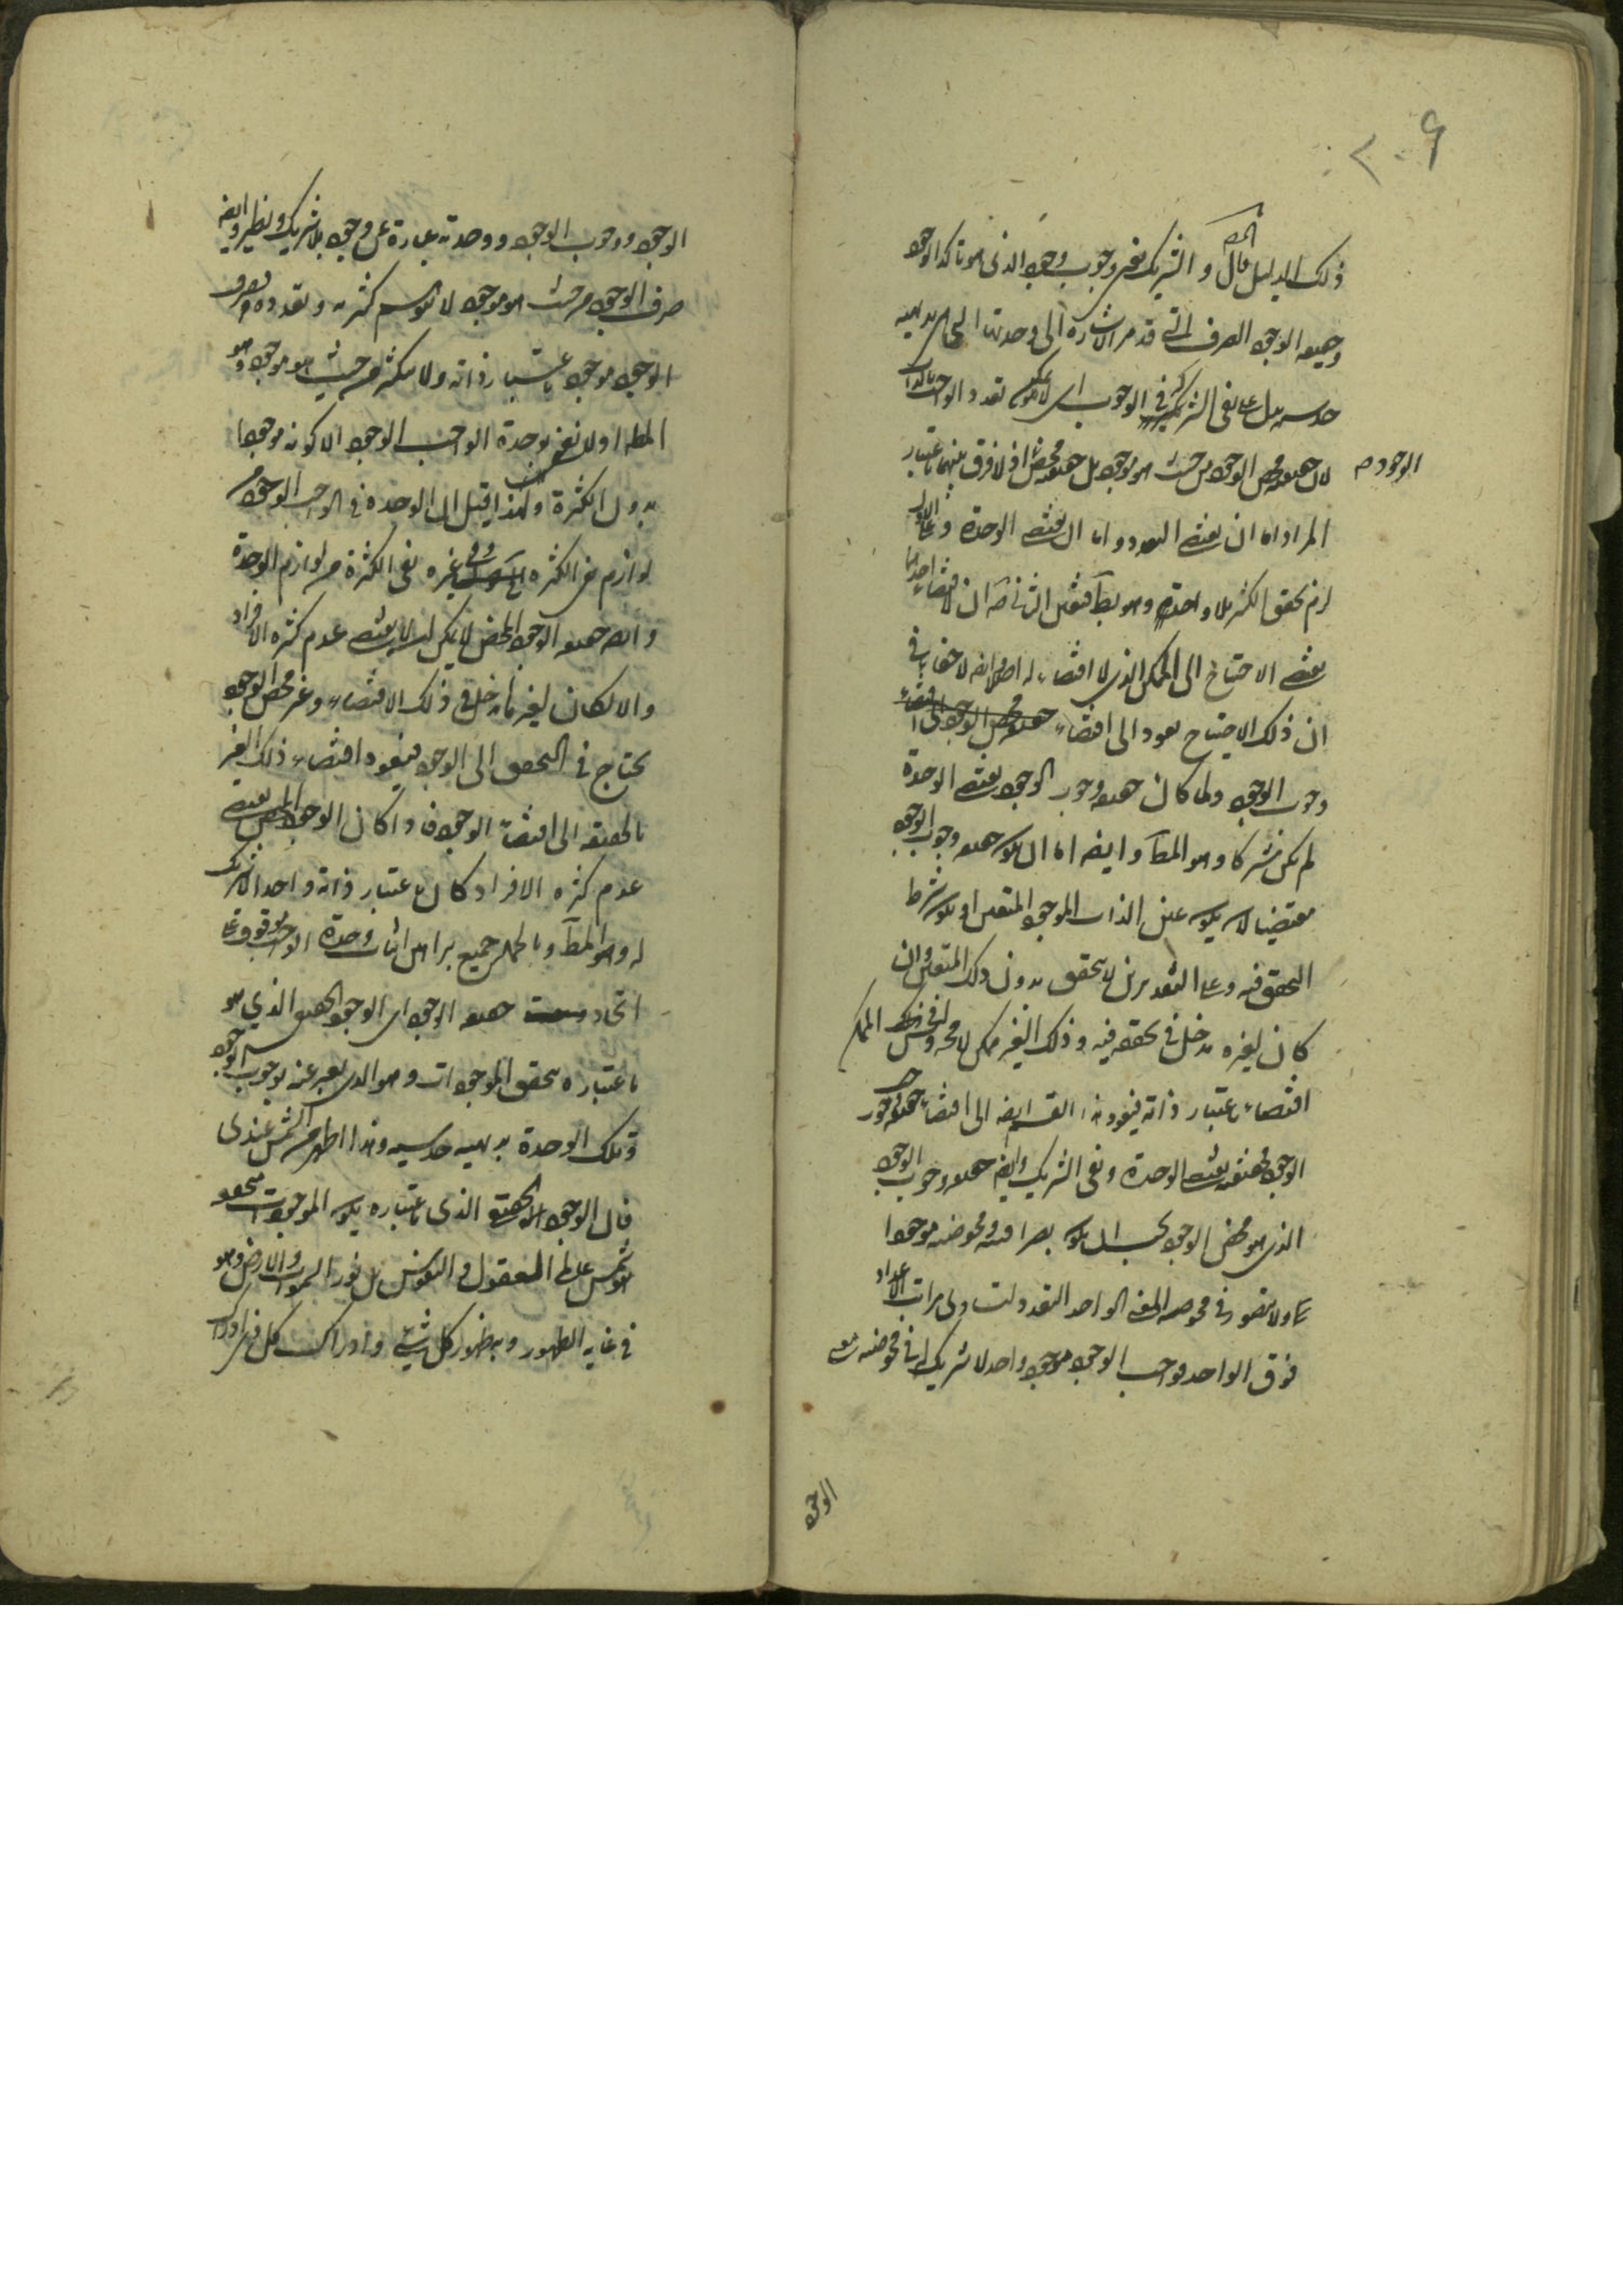 ٢٠٩
ذلك الدليل قال المص والشريك نفي وجوب وجود الذي هو تأكد الوجود
وحقيقة الوجود الصرف التي قد مر الاشارة الى وحدتها
حدسية يدل على نفي الشركة في الوجوب اي لا يمكن تعدد الواجب بالذات
لان حقيقة محض الوجود من حيث هو موجود بل حقيقة محض اذ لا فرق بينهما باعتبار
الوجود
المراد اما ان يقتضي التعدد واما ان يقتضي الوحدة وعلى الاول
لزم تحقق الكثير بلا واحد وهو بط فتعين الثاني
يقتضي الاحتياج الى الممكن الذي لا اقتضاء له اصلا ايضا لا خفاء في
ان ذلك الاحتياج يعود الى اقتضاء حقيقة محض الوجود
وجوب الوجود ولما كان حقيقة وجوب الوجود يقتضي الوحدة
لم يكن مشتركا وهو المط وايضا اما ان يكون حقيقة وجوب الوجود
مقتضيا لان يكون عين الذات الموجود المتعين او يكون شرط
التحقق فيه وعلى التقديرين لا يتحقق بدون ذلك المتعين وان
كان لغيره مدخل في تحققه فيه وذلك الغير ممكن لا محة وليس في ذلك الممكن
اقتضاء باعتبار ذاته فيعود هذا القسم ايضا الى اقتضاء حقيقة وجوب
الوجود فحقيقته يقتضي الوحدة ونفي الشريك وايضا حقيقة وجوب الوجود
الذي هو محض الوجود يجب ان يكون بصرافته ومحوضته موجودا
ولا يتصور في محوضة المعنى الواحد التعدد ولى مراتب الاعداد
فوق الواحد فواجب الوجود موجود واحد لا شريك له في محوضته
الوجود
الوجود ووجوب الوجود ووحدته عبارة عن وجود بلا شريك ونظير وايضا
صرف الوجود من حيث هو موجود لا يتوهم كثرته وتعدده وصرف
الوجود موجود باعتبار ذاته ولا يتكثر من حيث هو موجود وهو
المط اولا نعني بوحدة الواجب الوجود الا كونه موجودا
بدون الكثرة ولهذا قيل ان الوحدة في الواجب الوجود من
لوازم نفي الكثرة وفي غيره نفي الكثرة من لوازم الوحدة
وايضا حقيقة الوجود المحض لا يمكن ان لا يقتضي عدم كثرة الافراد
والا لكان لغيره مدخل في ذلك الاقتضاء وغير محض الوجود
يحتاج في التحقق الى الوجود فيعود اقتضاء ذلك الغير
بالحقيقة الى اقتضاء الوجود فاذا كان الوجود المحض يقتضي
عدم كثرة الافراد كان باعتبار ذاته واحدا لا شريك
له وهو المط وبالجملة جميع براهين اثبات وحدة الواجب موقوف على
اتحاد حقيقة الوجود اي الوجود الحقيقي الذي هو
باعتباره يتحقق الموجودات وهو الذي يعبر عنه بوجوب الوجود
وتلك الوحدة بديهية حدسية وهذا اظهر من الشمس عندي
فان الوجود الحقيقي الذي باعتباره يكون الموجودات متحققة
هو شمس عالم العقول والنفوس بل نور السموات والارض وهو
في غاية الظهور وبه ظهور كل شيء وادراك كل